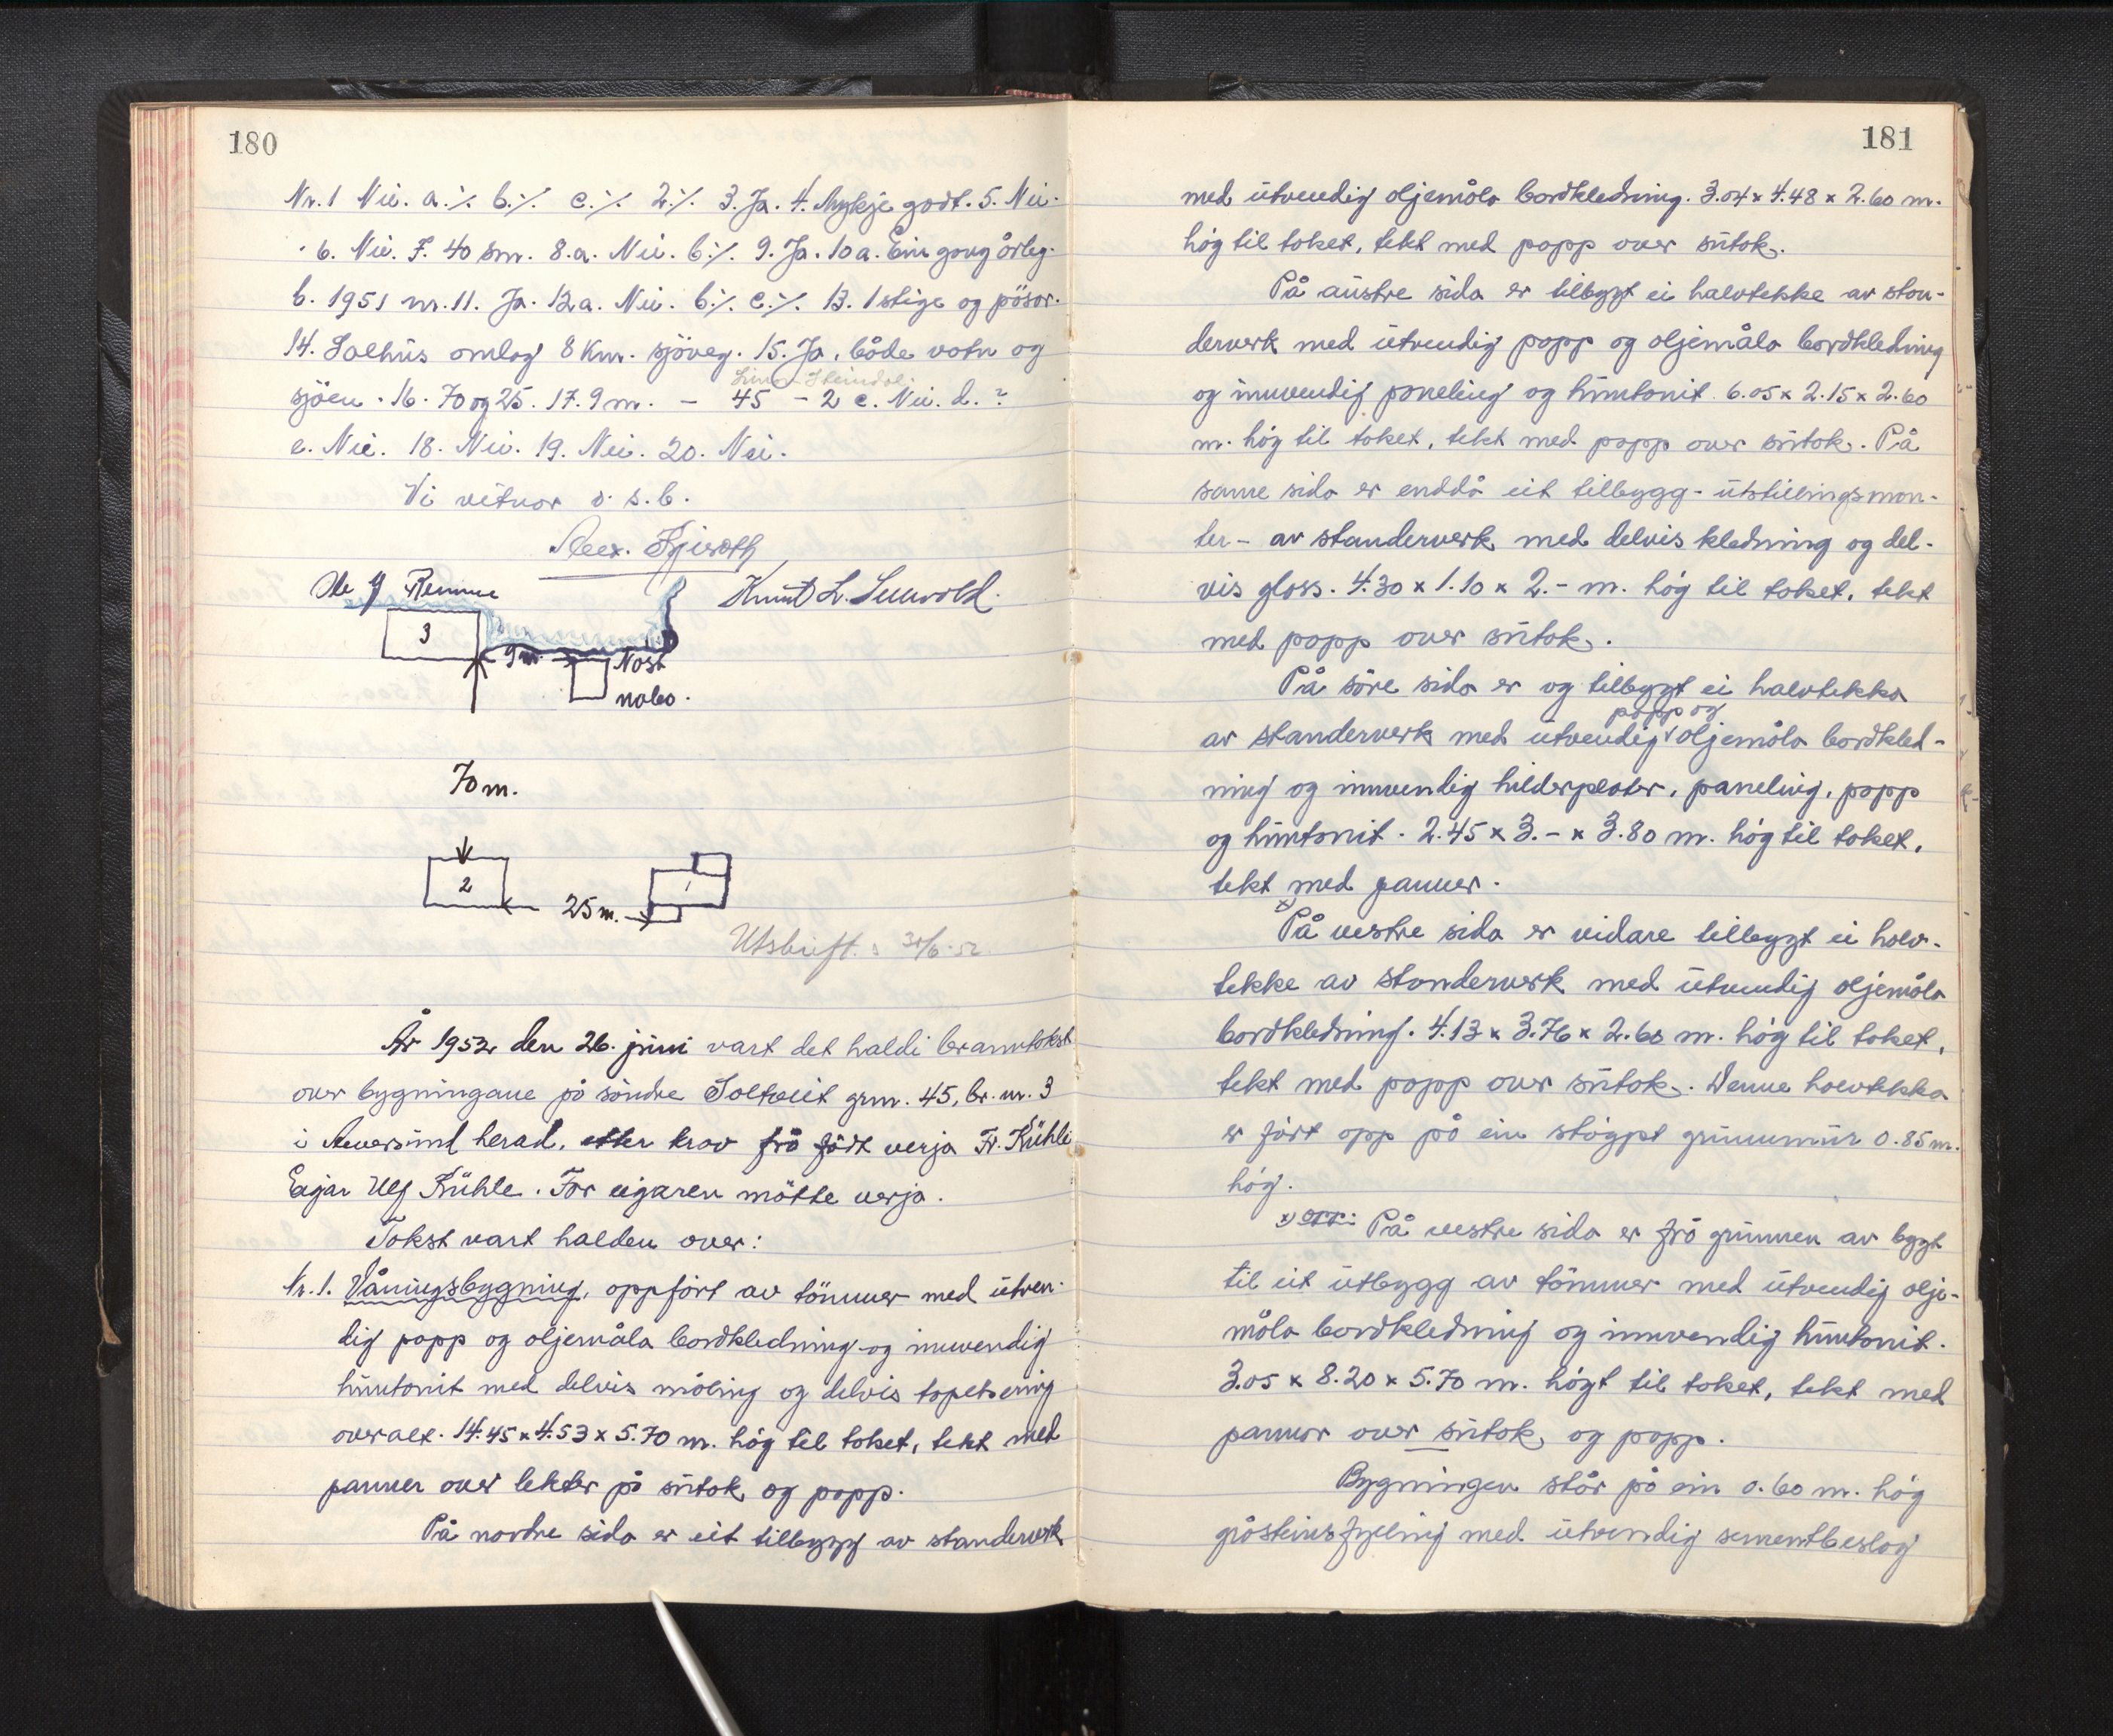 180
Nr. 1 Nei. a. ./. b. ./. c. ./. 2. ./. 3. Ja. 4. Mykje godt. 5. Nei.
6. Nei. 7. 40 sm. 8.a. Nei. b. ./. 9. Ja. 10 a. Ein gong årleg.
b. 1951 nr. 11. Ja. 12a. Nei. b. ./. c. ./. 13. 1 stige og pösar.
14. Salhus omlag 8 km. sjöveg. 15. Ja, både vatn og
sjöen. 16. 70 og 25. 17. 9 m. – 45 – 2 c. Nei. d. ?
e. Nei. 18. Nei. 19. Nei. 20. Nei.
Vi vitnar o. s. b.
Ole J Remme Knut L.
3
9 m.
Nost
nabo.
70 m.
2
1
25 m.
Utskrift. 30/6-52
År 1952 den 26. juni vart det haldi branntakst
over bygningane på söndre Soltveit grnr. 45, br. nr. 3
i Alversund herad, etter krav frå födt verja Fr. Kühle
Eigar Ulf Kühle. For eigaren mötte verja.
Takst vart halden over:
Nr. 1. Våningsbygning, oppfört av tömmer med utven-
dig papp og oljemåla bordkledning og innvendig
huntonit med delvis måling og delvis tapetsering
overalt. 14.45 x 4.53 x 5.70 m. høg til taket, tekt med
panner over lekter på sutak og papp.
På nordre sida er eit tilbygg av standerverk
181
med utvendig oljemåla bordkledning. 3.04 x 4.48 x 2.60 m.
høg til taket, tekt med papp over sutak.
På austre sida er tilbygt ei halvtekke av stan-
derverk med utvendig papp og oljemåla bordkledning
og innvendig paneling og huntonit. 6.05 x 2.15 x 2.60
m. høg til taket, tekt med papp over sutak. På
same sida er enddå eit tilbygg - utstillingsmon-
ter - av standerverk med delvis kledning og del-
vis glass. 4.30 x 1.10 x 2.- m. høg til taket, tekt
med papp over sutak.
På söre sida er og tilbygt ei halvtekka
av standerverk med utvendig papp og oljemåla bordkled-
ning og innvendig hilderplater, paneling, papp
og huntonit. 2.45 x 3.- x 3.80 m. høg til taket,
tekt med panner.
x) På vestre sida er vidare tilbygt ei halv-
tekke av standerverk med utvendig oljemåla
bordkledning. 4.13 x 3.76 x 2.60 m. høg til taket,
tekt med papp over sutak. Denne halvtekka
er fört opp på ein stöypt grunnmur 0.85 m.
høg.
x) På vestre sida er frå grunnen av bygt
til eit utbygg av tömmer med utvendig olje-
måla bordkledning og innvendig huntonit.
3.05 x 8.20 x 5.70 m. högt til taket, tekt med
pannor over sutak og papp.
Bygningen står på ein 0.60 m. høg
gråsteinsfylling med utvendig sementbeslag